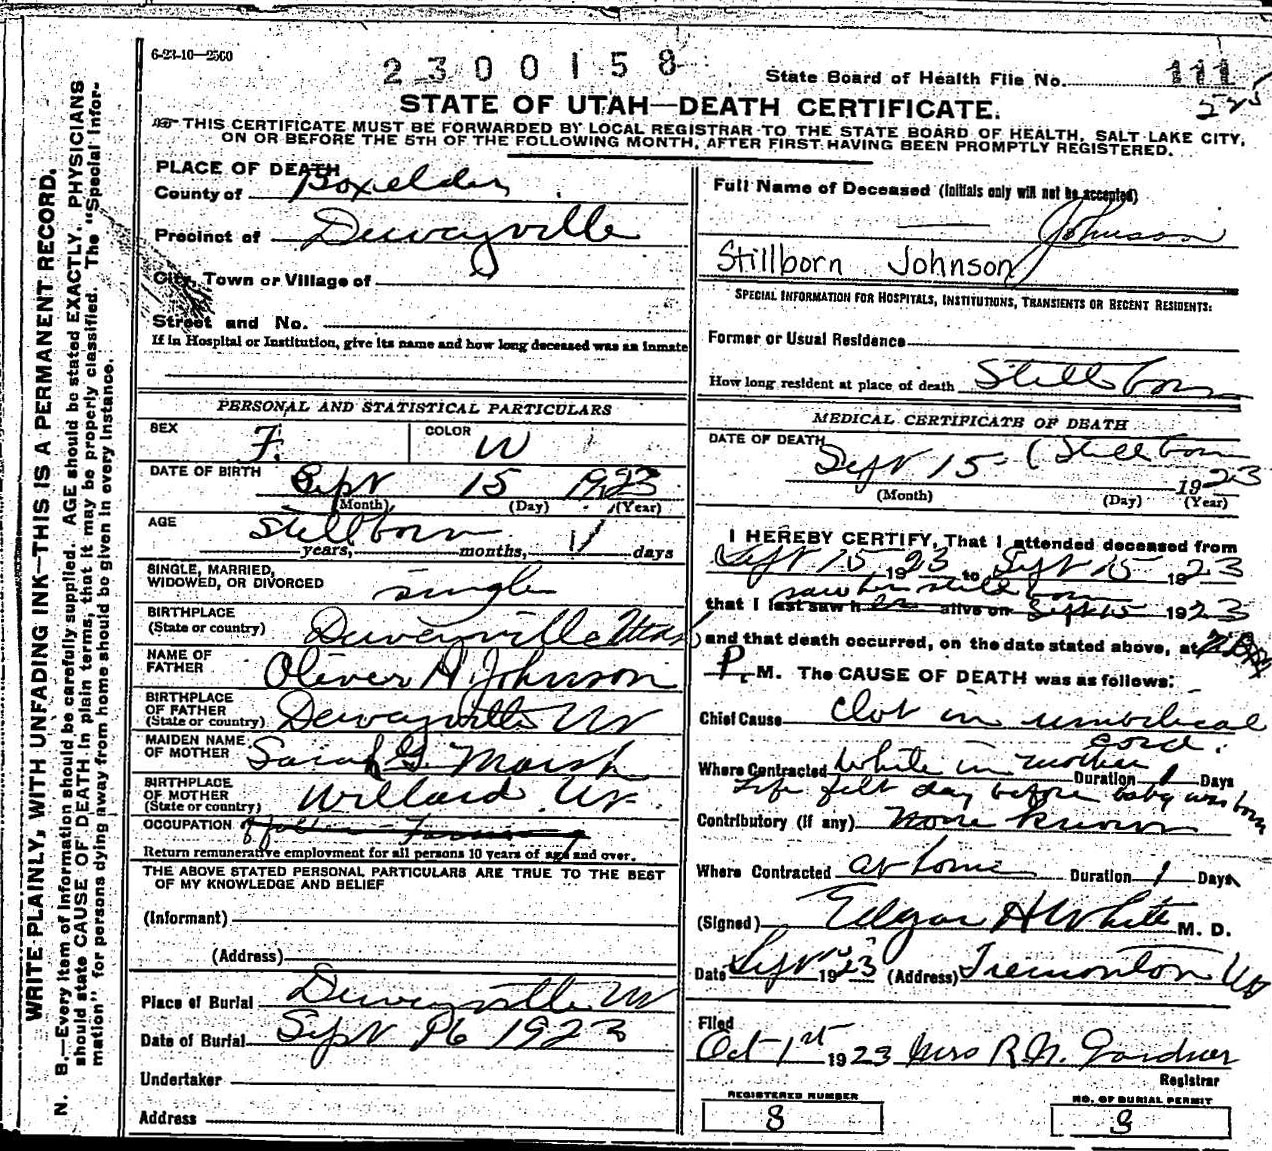 6-23-10—2500
2300158
State Board of Health File No.
STATE OF UTAH—DEATH CERTIFICATE.
THIS CERTIFICATE MUST BE FORWARDED BY LOCAL REGISTRAR TO THE STATE BOARD OF HEALTH, SALT LAKE CITY,
ON OR BEFORE THE 5TH OF THE FOLLOWING MONTH, AFTER FIRST HAVING BEEN PROMPTLY REGISTERED.
WRITE PLAINLY, WITH UNFADING INK—THIS IS A PERMANENT RECORD.
N. B.—Every item of information should be carefully supplied. AGE should be stated EXACTLY. PHYSICIANS
should state CAUSE OF DEATH in plain terms, that it may be properly classified. The "Special Infor-
mation" for persons dying away from home should be given in every instance.
PLACE OF DEATH
County of Boxelder
Precinct of Deweyville
City, Town or Village of
Street and No.
If in Hospital or Institution, give its name and how long deceased was an inmate
PERSONAL AND STATISTICAL PARTICULARS
SEX F. COLOR W
DATE OF BIRTH Sept 15 1923
(Month) (Day) (Year)
AGE Stillborn
years, months, days
SINGLE, MARRIED,
WIDOWED, OR DIVORCED single
BIRTHPLACE
(State or country) Deweyville Utah
NAME OF
FATHER Oliver A. Johnson
BIRTHPLACE
OF FATHER
(State or country) Deweyville Ut
MAIDEN NAME
OF MOTHER Sarah G. Marsh
BIRTHPLACE
OF MOTHER
(State or country) Willard Ut.
OCCUPATION
Return remunerative employment for all persons 10 years of age and over.
THE ABOVE STATED PERSONAL PARTICULARS ARE TRUE TO THE BEST
OF MY KNOWLEDGE AND BELIEF
(Informant)
(Address)
Place of Burial Deweyville Ut
Date of Burial Sept 16 1923
Undertaker
Address
Full Name of Deceased (Initials only will not be accepted)
Johnson
Stillborn Johnson
SPECIAL INFORMATION FOR HOSPITALS, INSTITUTIONS, TRANSIENTS OR RECENT RESIDENTS:
Former or Usual Residence
How long resident at place of death Stillborn
MEDICAL CERTIFICATE OF DEATH
DATE OF DEATH
Sept 15 (Stillborn 1923
(Month) (Day) (Year)
I HEREBY CERTIFY, That I attended deceased from
Sept 15 1923 to Sept 15 1923
saw her still born
that I last saw h er alive on Sept 15 1923
and that death occurred, on the date stated above, at
P. M. The CAUSE OF DEATH was as follows:
Chief Cause Clot in umbilical
cord.
Where Contracted While in mother Duration 1 Days
Life felt day before baby was born
Contributory (if any) None known
Where Contracted at home Duration 1 Days
(Signed) Edgar H White M. D.
Date Sept 1923 (Address) Tremonton Ut
Filed
Oct 1st 1923 Mrs R.N. Gardner
Registrar
REGISTERED NUMBER
8
NO. OF BURIAL PERMIT
8